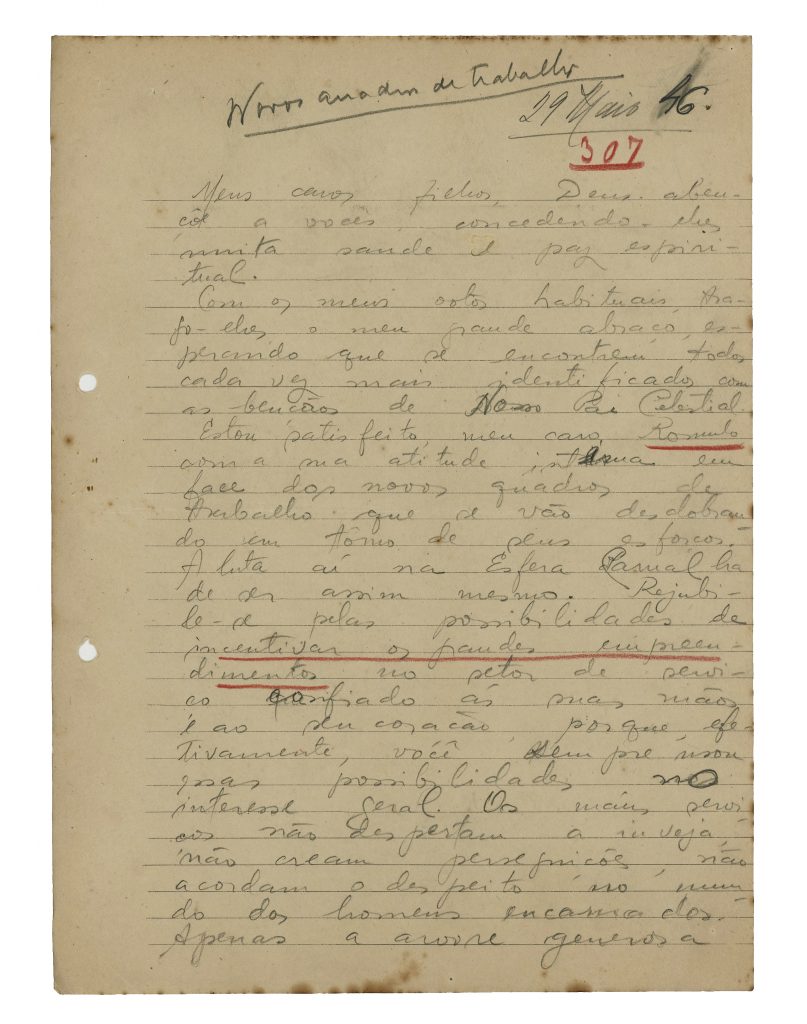 Novos quadros de trabalho
29 Maio 46.
307
Meus caros filhos, Deus aben-
çôe a vocês, concedendo-lhes
muita saude e paz espiri-
tual.
Com os meus votos habituais, tra-
go-lhes o meu grande abraço, es-
perando que se encontrem todos
cada vez mais identificados com
as bençãos de Nosso Pai Celestial.
Estou satisfeito, meu caro Romulo
com a sua atitude interna em
face dos novos quadros de
trabalho que se vão desdobran
do em tôrno de seus esforços.
A luta aí na Esfera Carnal ha
de ser assim mesmo. Rejubi-
le-se pelas possibilidades de
incentivar os grandes empreen-
dimentos no setor de servi-
ço confiado ás suas mãos
e ao seu coração, porque, efe-
tivamente, você sempre usou
essas possibilidades no
interesse geral. Os máus servi
ços não despertam a inveja,
não cream perseguições, não
acordam o despeito no mun
do dos homens encarnados.
Apenas a arvore generosa